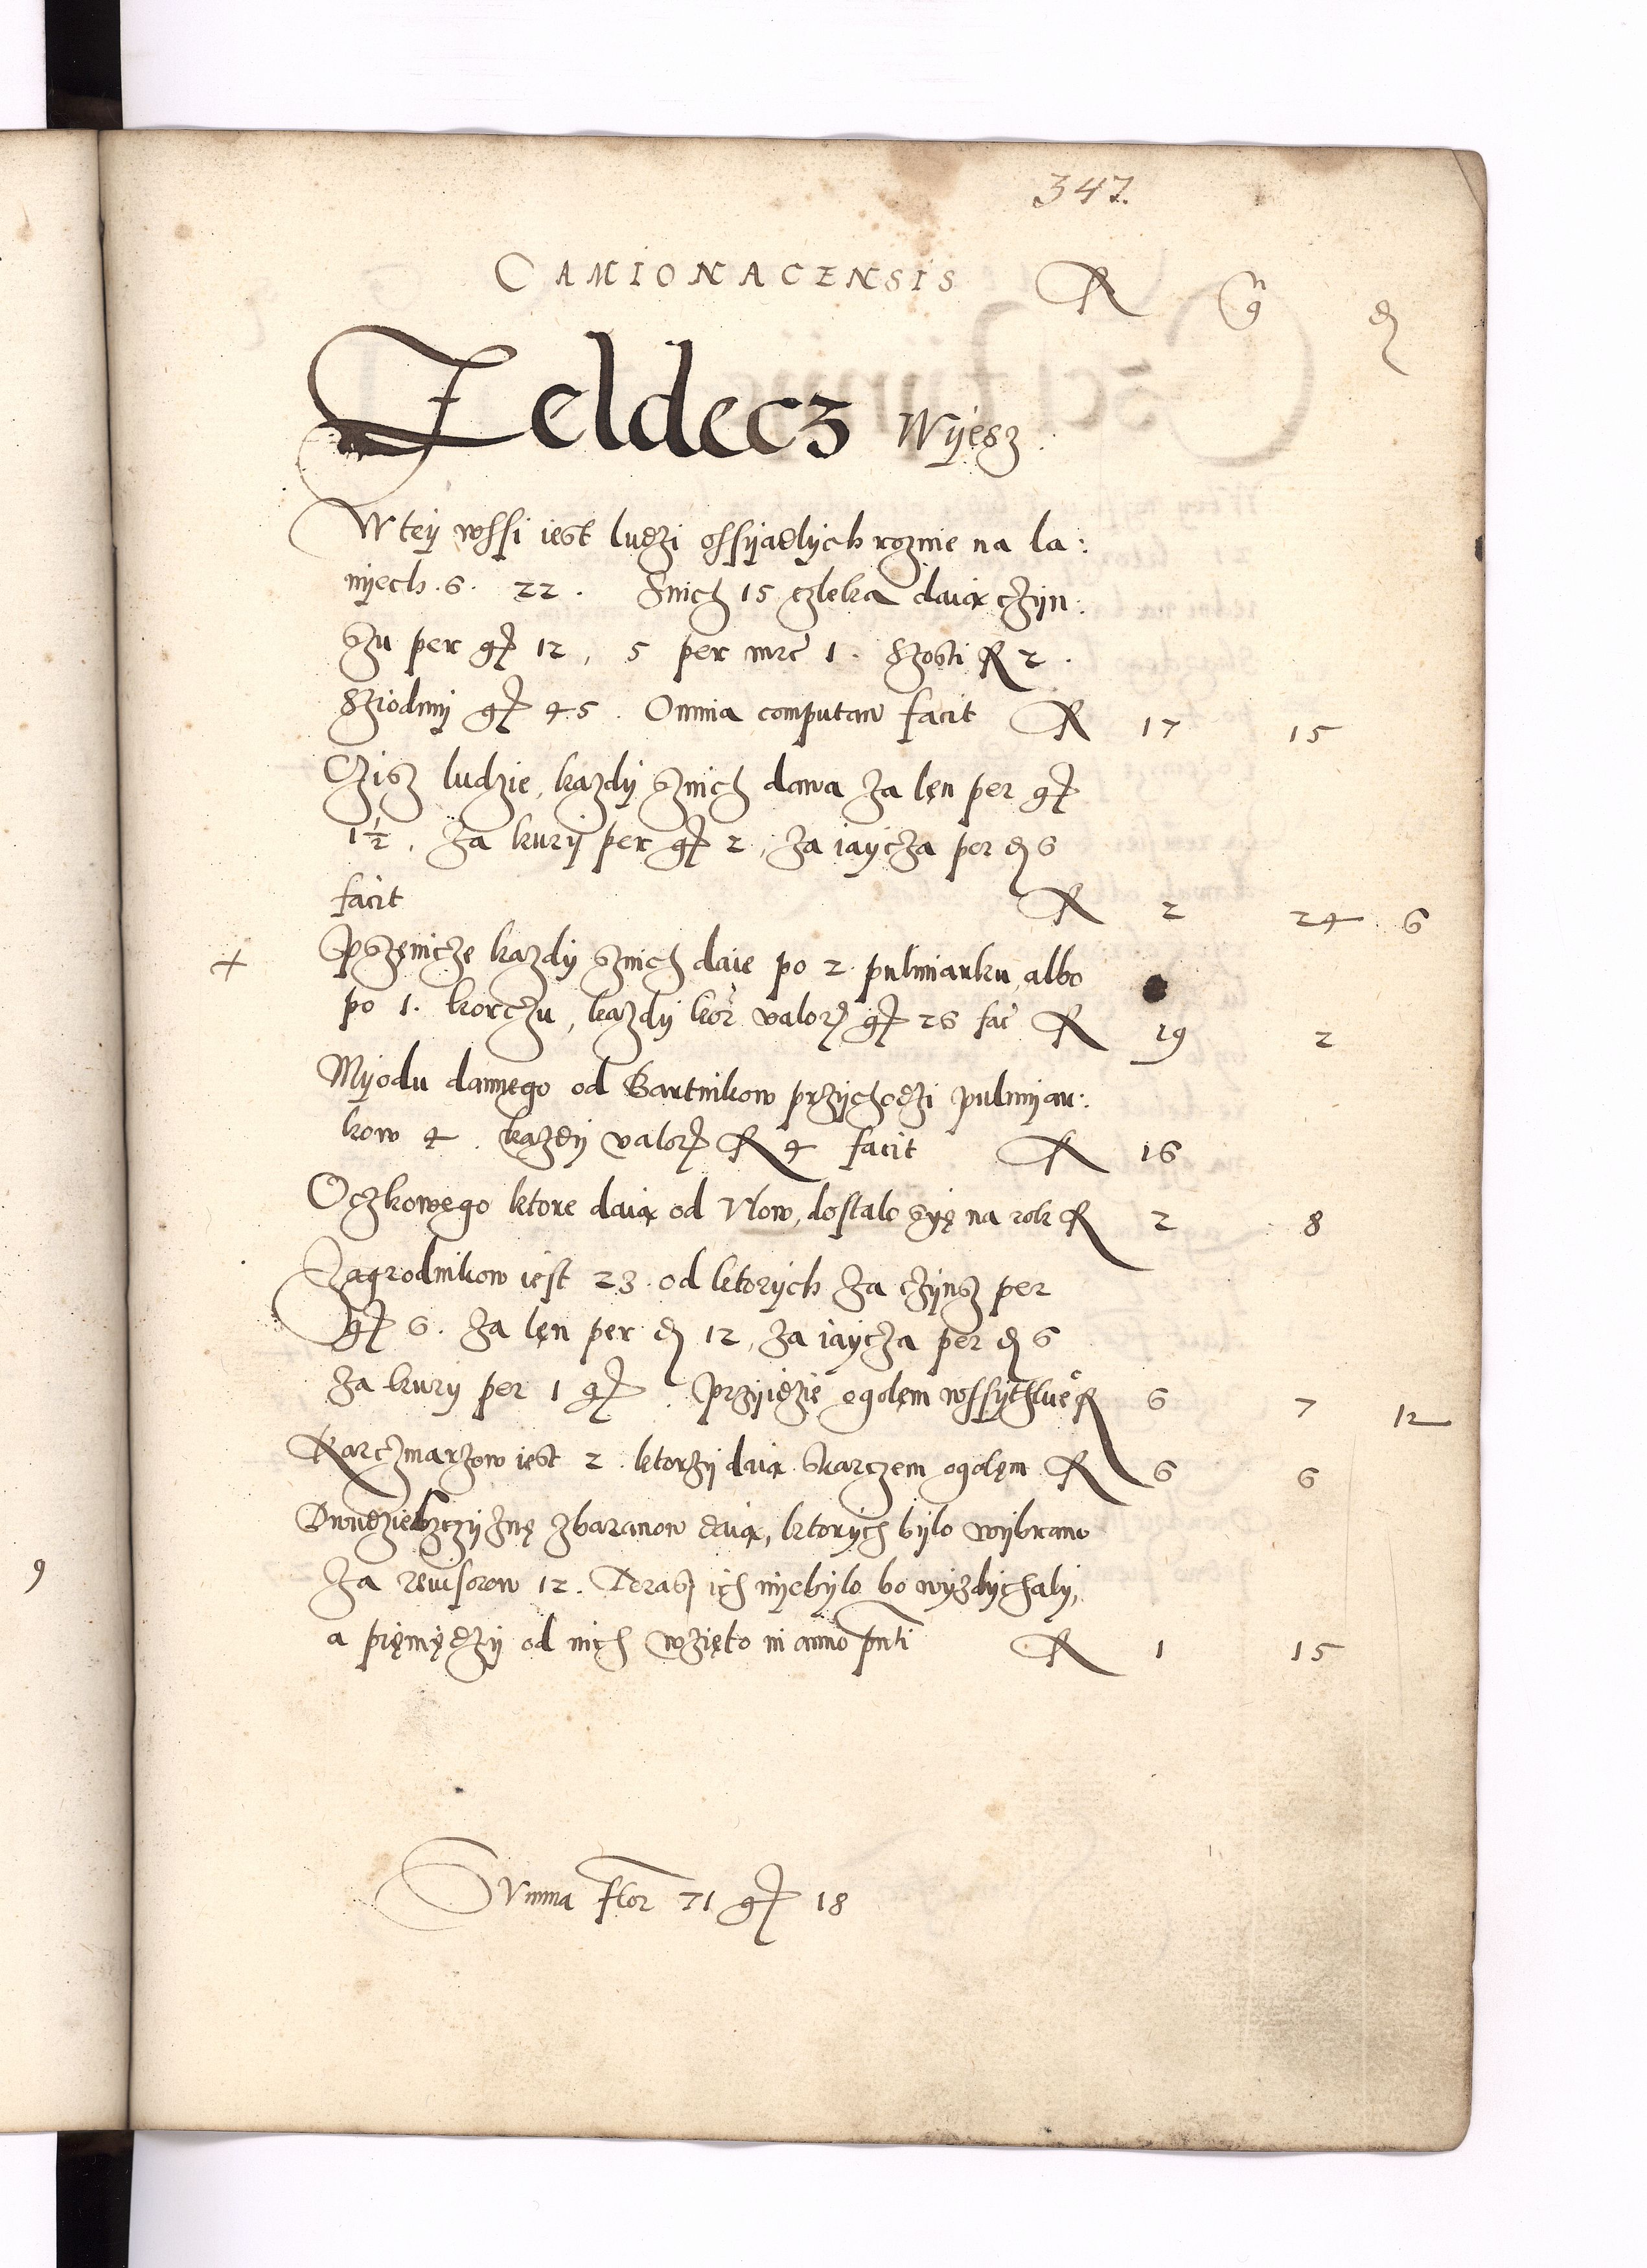 347.
CAMIONACENSIS R gr d
Zeldecz Wÿesz
W teÿ wssi iest ludzi ossÿadlÿch roznie na la:
nÿech. 6. 22. Snich 15 czleka daią czÿn:
szu per gr 12, 5 per mrc 1. Szosti R 2.
Sziodmÿ gr 45. Omnia computan facit R 17 15
Czisz ludzie, kazdÿ sznich dawa za len per gr
1½, za kurÿ per gr 2, za iaÿcza per d 6
facit R 2 24 6
+ Pszenicze kazdÿ sznich daie po 2 pulmiarku, albo
po 1. korczu, kazdÿ kor valor gr 26 fac R 19 2
Mÿodu dannego od Bartnikow przÿchodzi pulmÿar:
kow 4. kazdÿ valor R 4 facit R 16
Oczkowego ktore daią od Vlow, dostalo sÿę na rok R 2 8
Zagrodnikow iest 23. od ktorÿch za czÿnsz per
gr 6. za len per d 12, za iaÿcza per d 6
za kurÿ per 1 gr. Przÿidzie ogolem R 6 7 12
Karczmarzow iest 2. ktorzÿ daią skarczem ogolem R 6 6
Dwudziesczÿznę zbaranow daią, ktorÿch bÿlo wÿbrano
za revisorow 12. Terasz ich nÿebÿlo bo wÿzdÿchalÿ,
a pięnÿędzÿ od nich wzięto in anno pnti R 1 15
Summa flor 71 gr 18
9